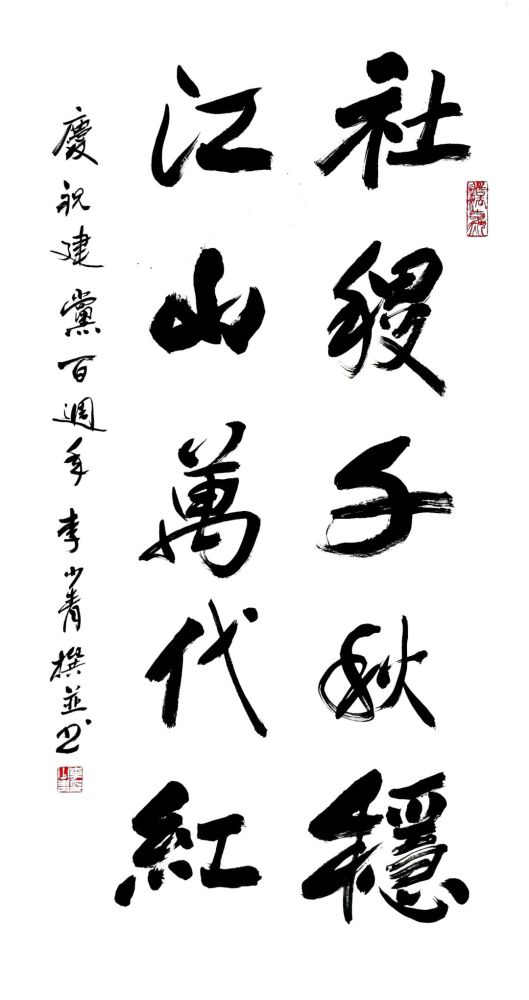 社稷千秋穩
江山萬代紅
慶祝建黨百週年 李小青撰並书